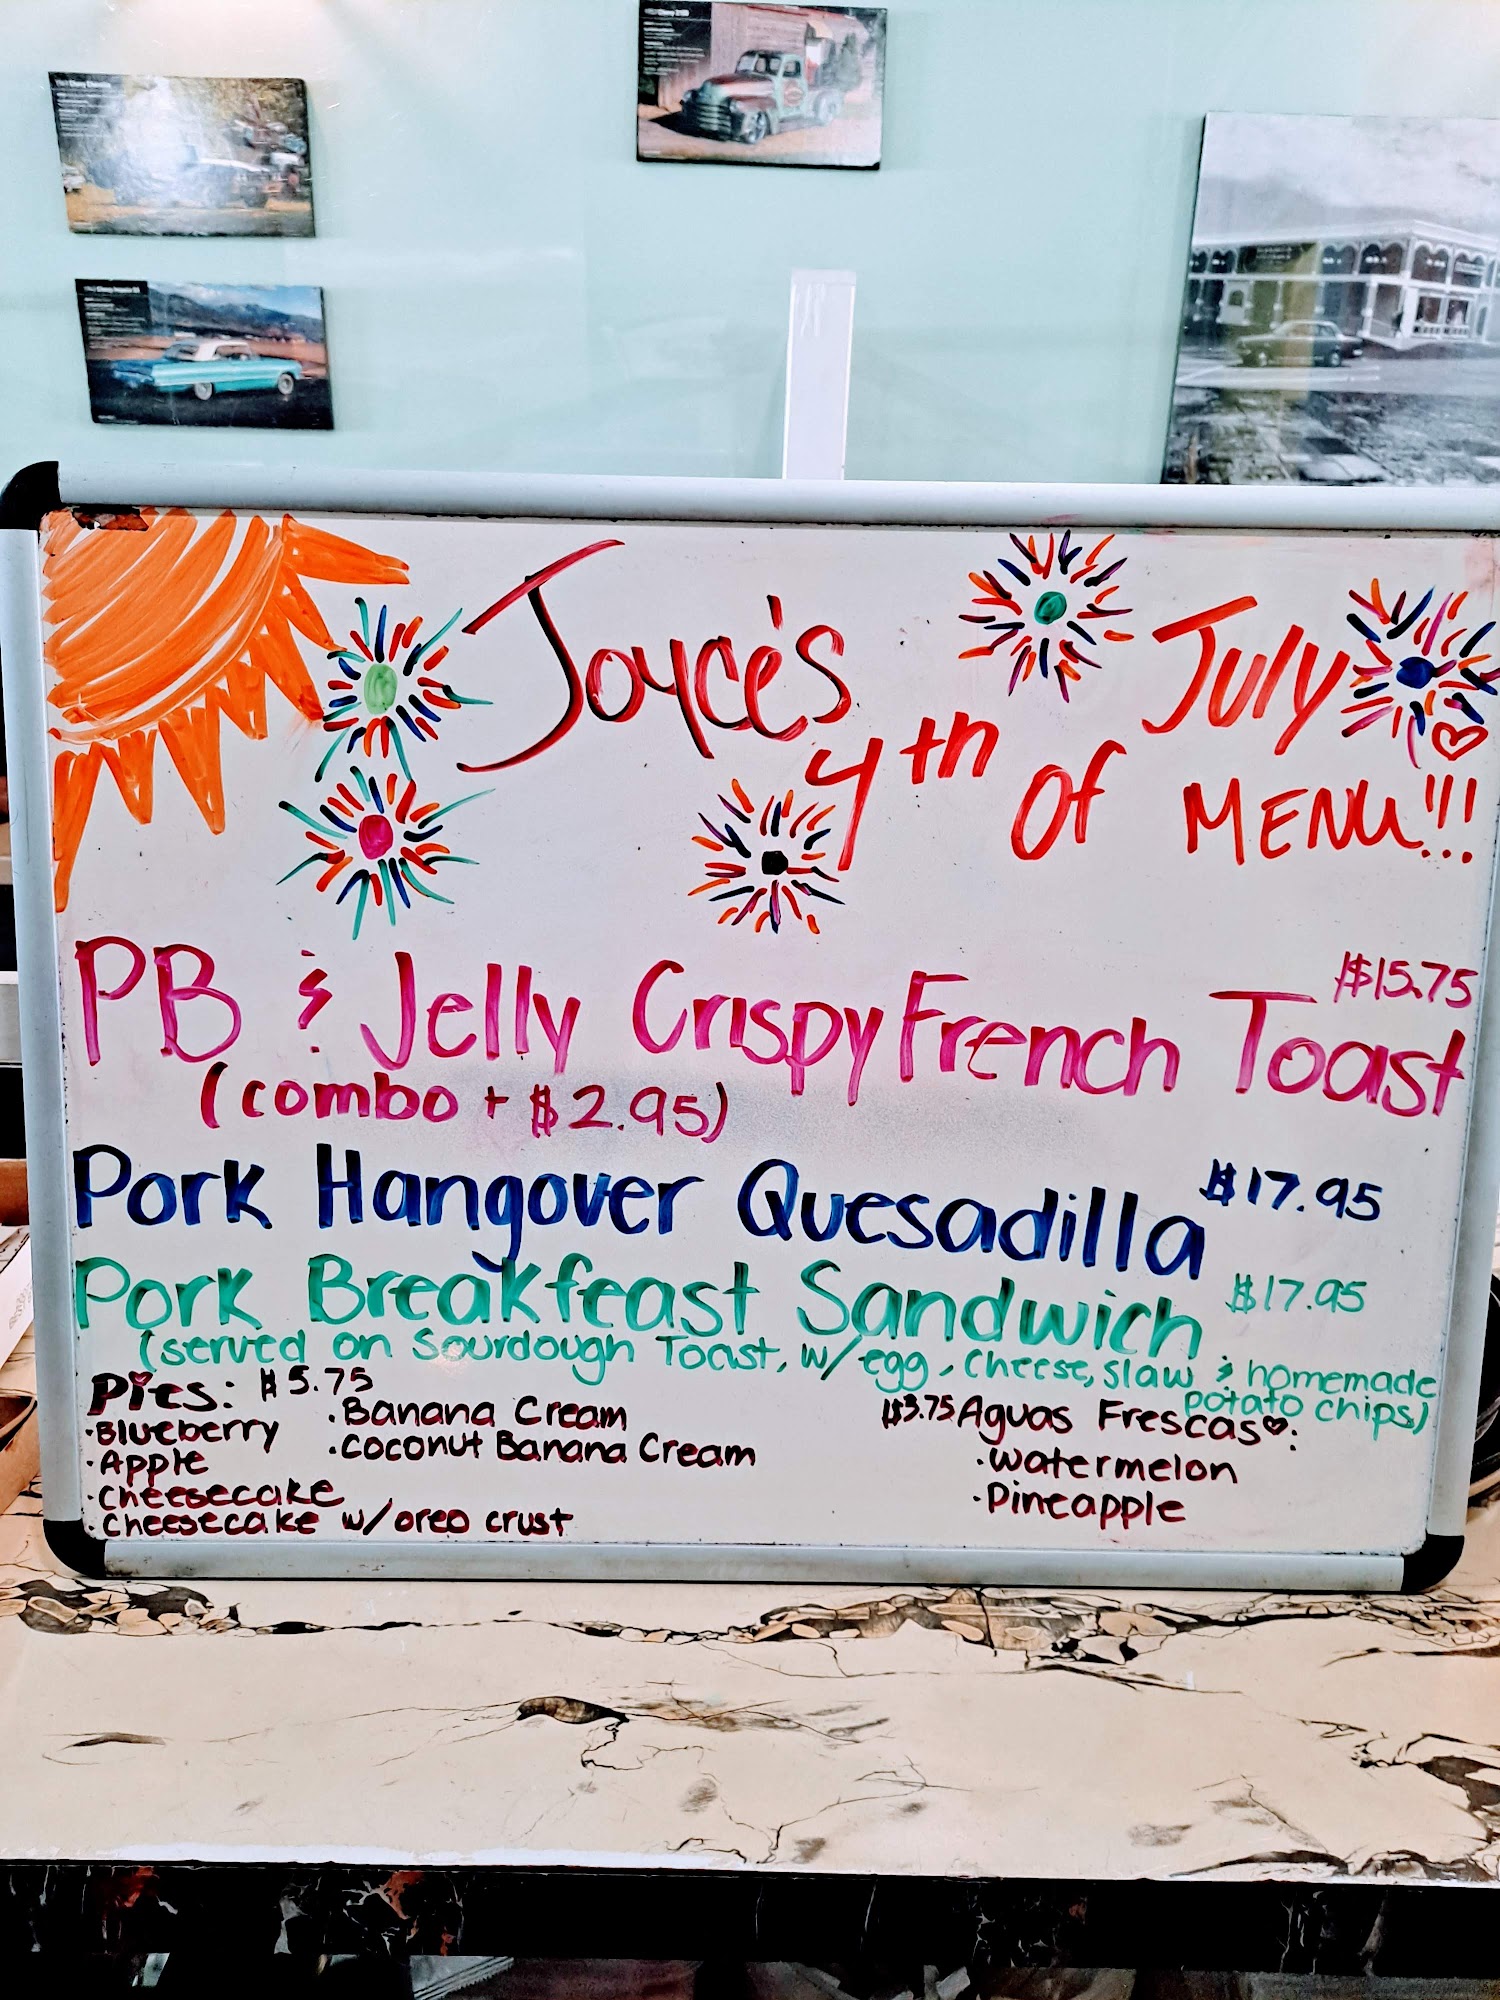 Joyce's
4th of July
MENU!!!
$15.75
PB & Jelly Crispy French Toast
(combo + $2.95)
Pork Hangover Quesadilla $17.95
Pork Breakfeast Sandwich $17.95
(served on Sourdough Toast, w/egg, cheese, slaw & homemade
potato chips)
Pies: $5.75
·Blueberry
·Apple
·Cheesecake
·Cheesecake w/oreo crust
·Banana Cream
·Coconut Banana Cream
$3.75 Aguas Frescas♡:
·Watermelon
·Pineapple